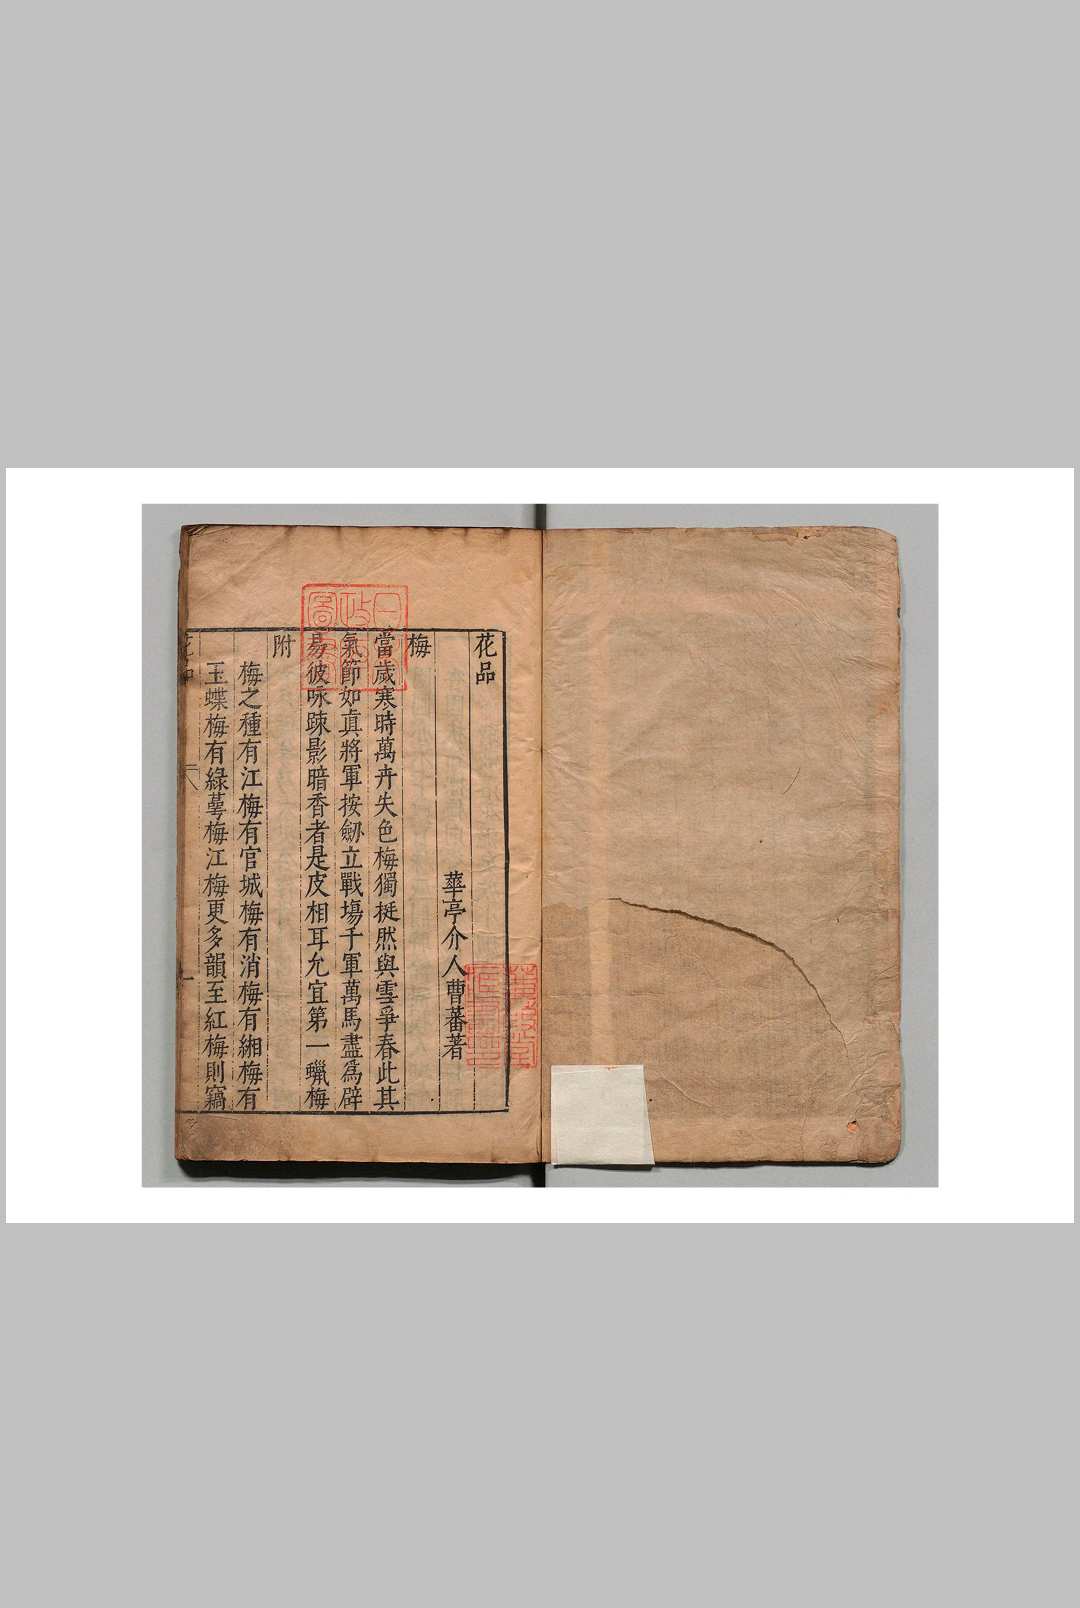 花品
華亭介人曹蕃著
梅
當歲寒時萬卉失色梅獨挺然與雪爭春此其
氣節如眞將軍按劒立戰塲千軍萬馬盡爲辟
易彼咏踈影暗香者是皮相耳允宜第一蠟梅
附
梅之種有江梅有官城梅有消梅有緗梅有
玉蝶梅有綠萼梅江梅更多韻至紅梅則竊
花品
一